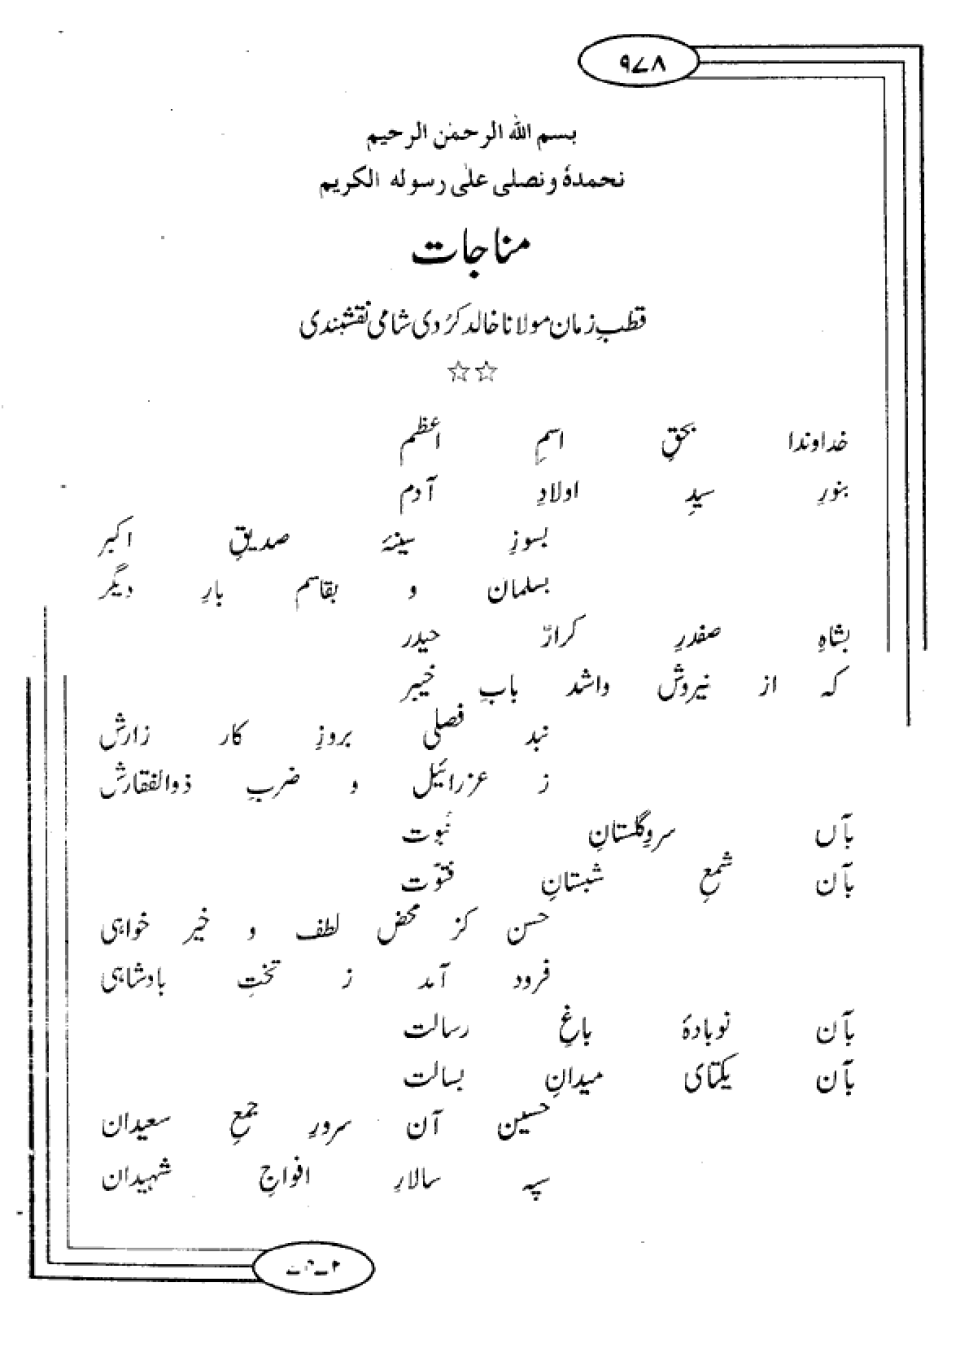 ۹۷۸
بسم اللہ الرحمٰن الرحیم
نحمدہٗ و نصلی علیٰ رسولہ الکریم
مناجات
قطبِ زمان مولانا خالد کرُدی شامی نقشبندی
☆☆
خداوندا بحقِ اسمِ اعظم
بنورِ سیدِ اولادِ آدم
بسوزِ سینۂ صدیقِ اکبر
بسلمان و بقاسم بارِ دیگر
بشاہِ صفدرِ کرارّ حیدر
کہ از نیروش واشد بابِ خیبر
نبد فصلی بروزِ کار زارش
ز عزرائیل و ضربِ ذوالفقارش
بآں سروِ گلستانِ نبوت
بآن شمعِ شبستانِ فتوّت
حسن کز محض لطف و خیر خواہی
فرود آمد ز تختِ بادشاہی
بآن نوبادۂ باغِ رسالت
بآن یکتای میدانِ بسالت
حسین آن سرورِ جمعِ سعیدان
سپہ سالارِ افواجِ شہیدان